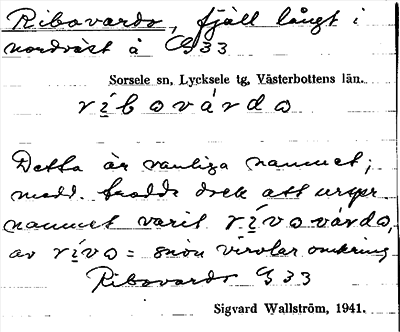 Ribovardo, fjäll långt i
nordväst å G33
Sorsele sn, Lycksele tg, Västerbottens län.
ríbovárdo
Detta är vanliga namnet;
medd. trodde dock att urspr
namnet varit rívovárdo,
av rívo = snön virvlar omkring
Ribovardo G33
Sigvard Wallström, 1941.